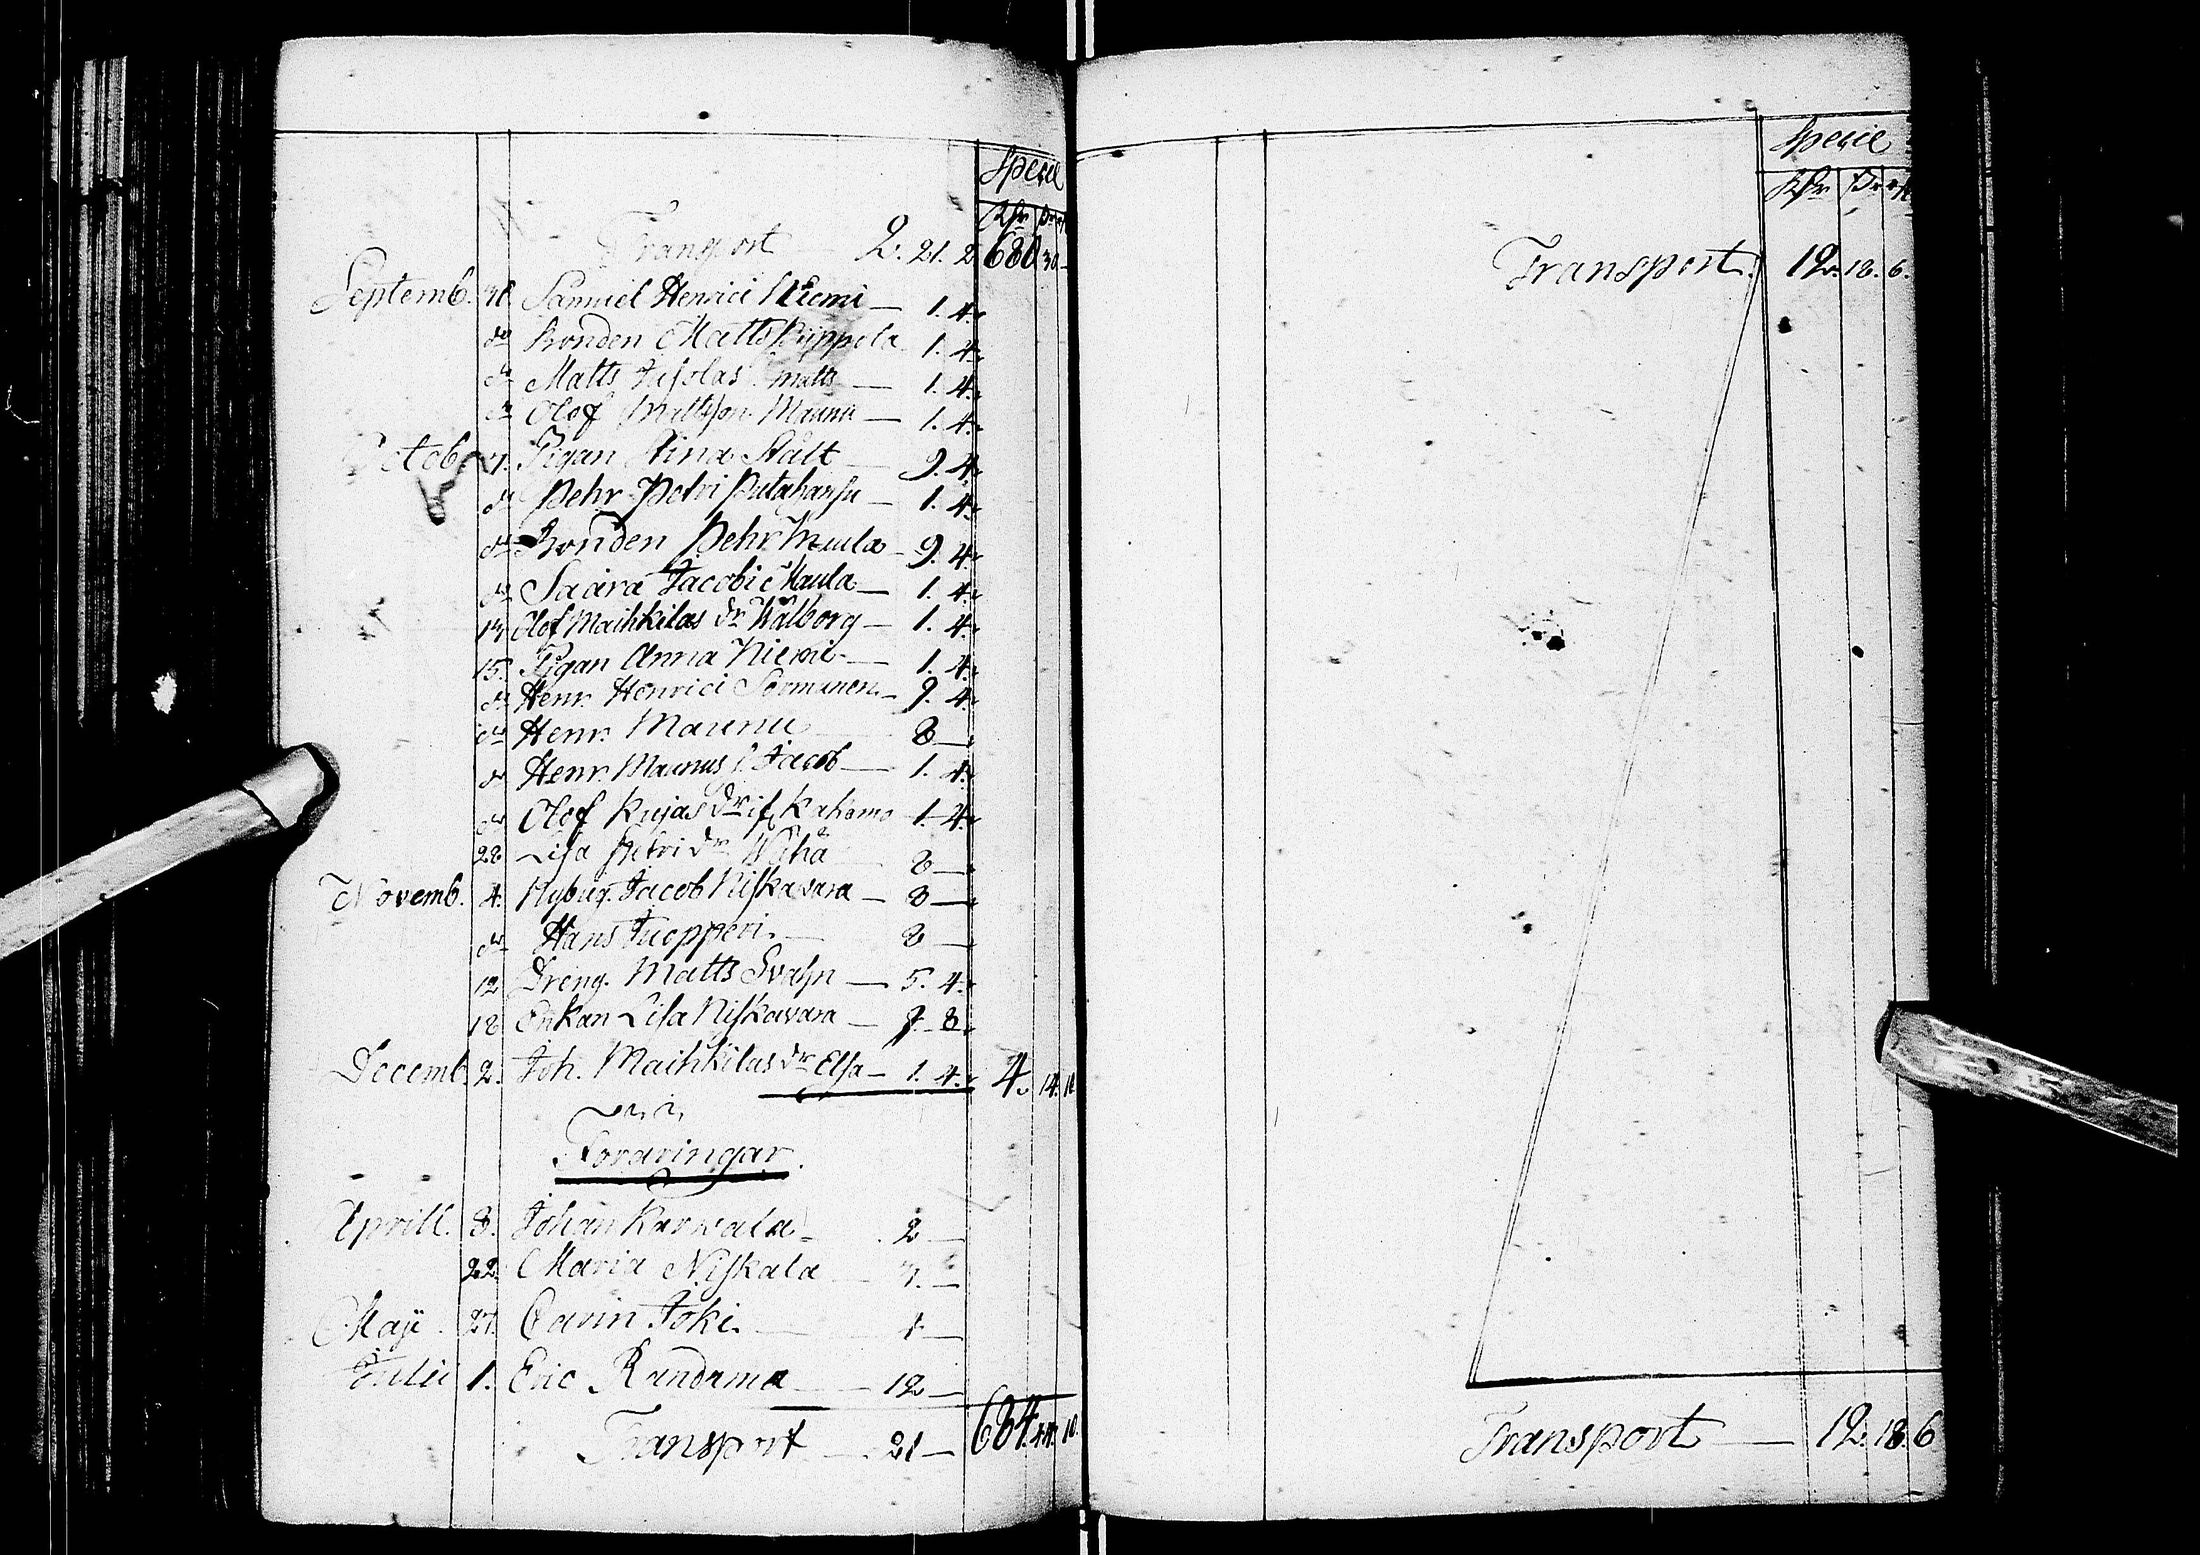 Specie
Transport 2. 21. 2. 680 30
Septemb. Samuel Henrici Niemi — 1. 4.
do Bonden Matts Pijppola 1. 4.
do Matts Matts — 1. 4.
do Olof Mattsson Maunu — 1. 4.
Octob. 7. Pigan Stina Stålt — 9. 4.
do Pehr Petri — 1. 4.
do Bonden Pehr Maula — 9. 4.
do Saara Jacobi Maula — 1. 4.
Olof Maihkilas dr Walborg — 1. 4.
15. Pigan Anna Niemi — 1. 4.
do Henr. Henrici Sormunen — 9. 4.
do Henr. Maunu 8 —
do Henr. Maunus s. Jacob — 1. 4.
do Olof Kujas 1. 4.
22 Lisa Petri dr 8 —
Novemb. 4. Nybyg. Jacob Niskavara — 8 —
do Hans Juopperi. — 8 —
12 Dreng. Matts Svahn — 5. 4.
18 Enkan Lisa Niskavara — 9. 8.
Decemb. 2. Joh. Maihkilas dr Elsa — 1. 4. 4. 14. 10
Foraringar.
Aprill. 8. Johan Karwala 2 —
22. Maria Niskala —
Maji 27. Carin Joki. —
Julii 1. Eric Randama — 12 —
Transport — 21 — 684. 44. 10.
Specie
Transport. 12. 18. 6.
Transport — 12. 18. 6